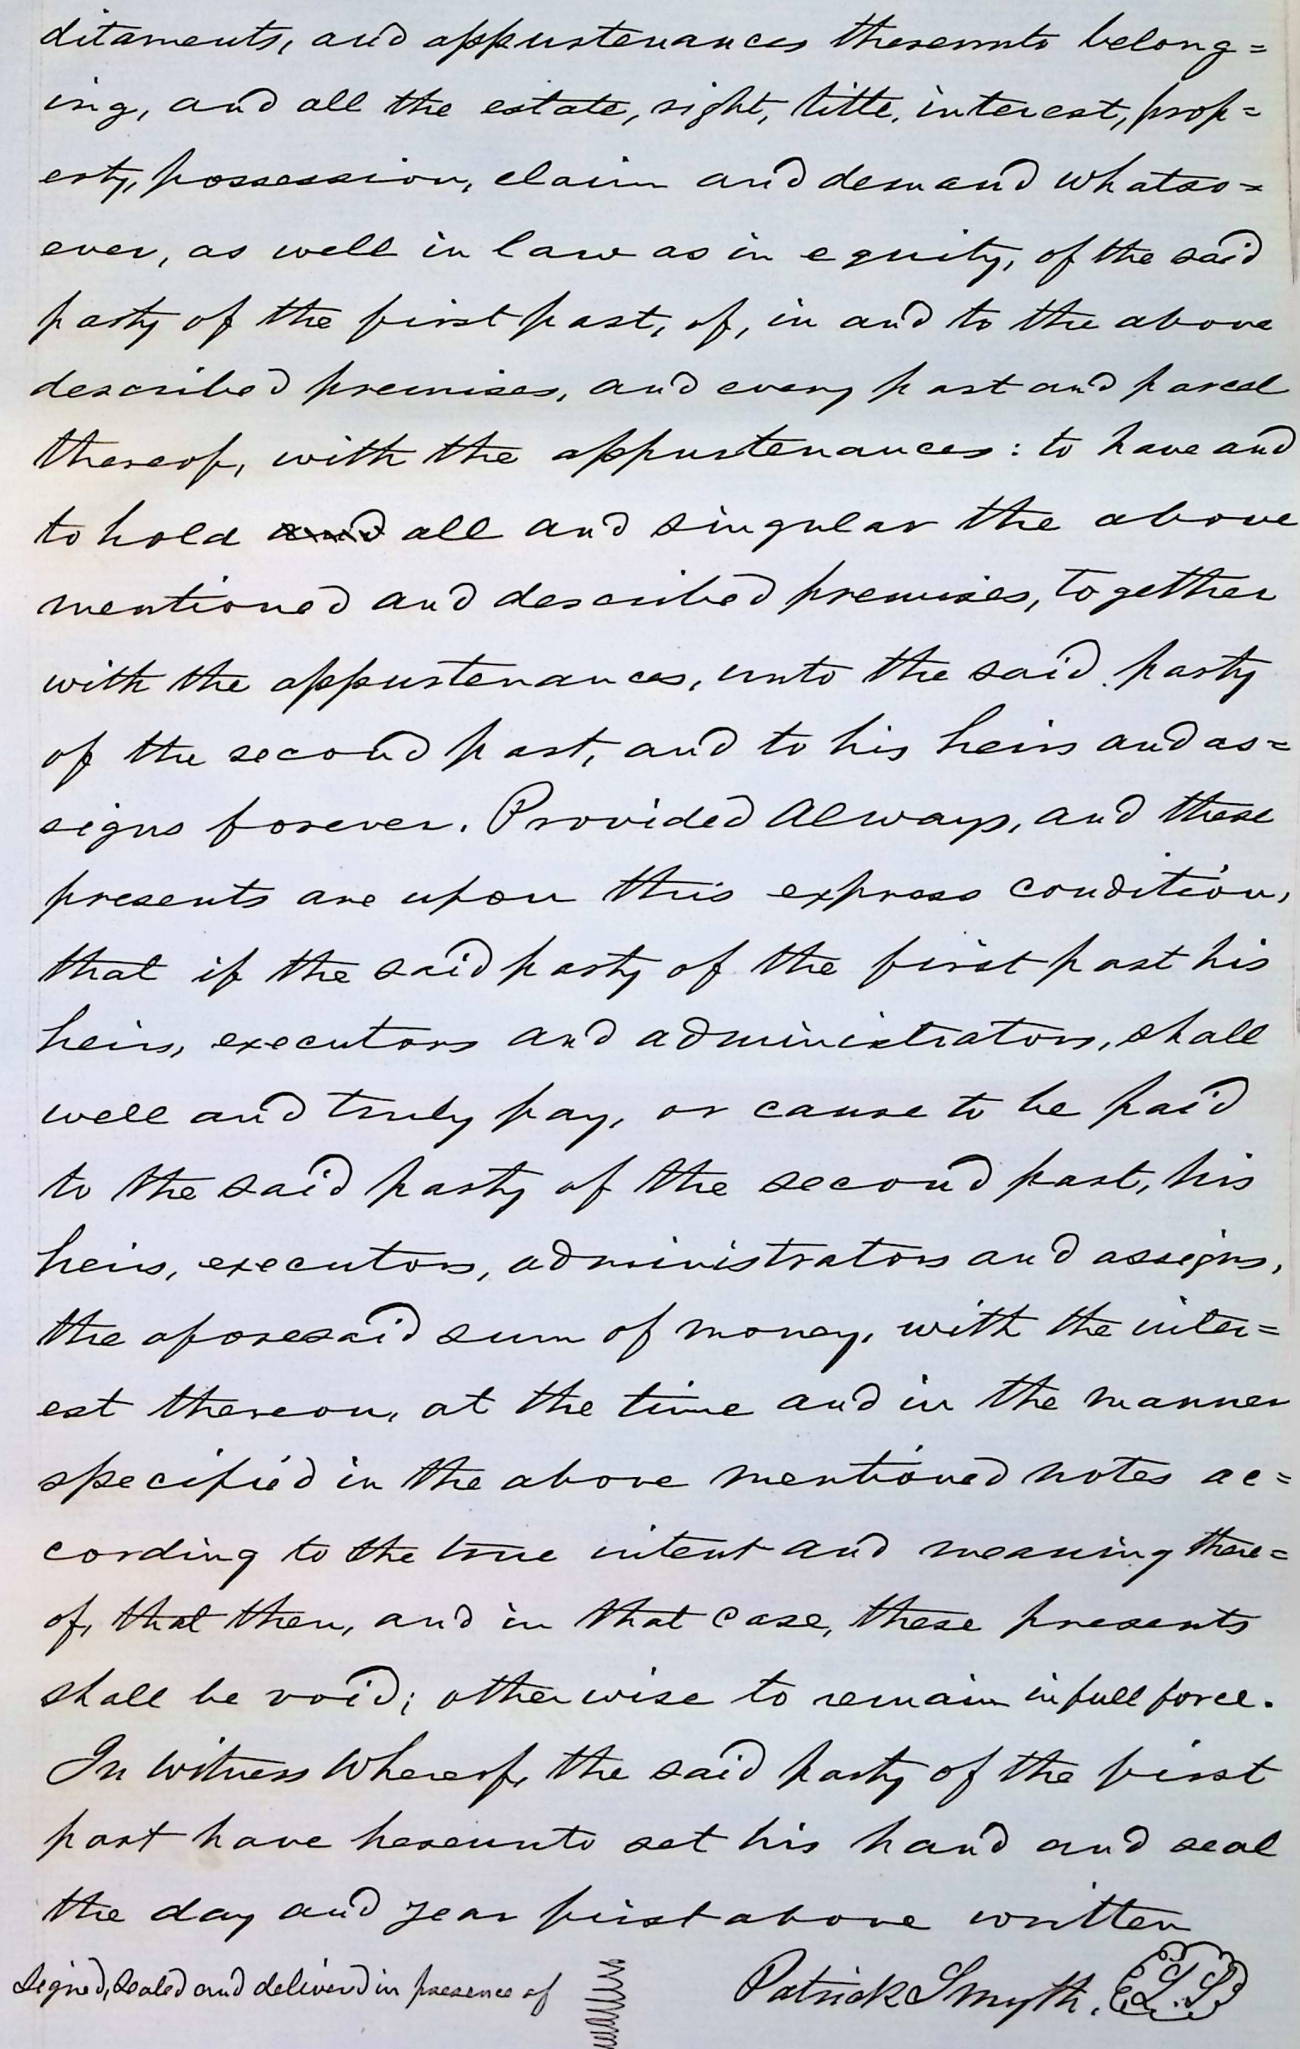 ditaments, and appurtenances thereunto belong=
ing, and all the estate, right, title, interest, prop=
erty, possession, claim and demand whatso=
ever, as well in law as in equity, of the said
party of the first part, of, in and to the above
described premises, and every part and parcel
thereof, with the appurtenances: to have and
to hold and all and singular the above
mentioned and described premises, together
with the appurtenances, unto the said party
of the second part, and to his heirs and as=
signs forever. Provided Always, and these
presents are upon this express condition,
that if the said party of the first part his
heirs, executors and administrators, shall
well and truly pay, or cause to be paid
to the said party of the second part, his
heirs, executors, administrators and assigns,
the aforesaid sum of money, with the inter=
est thereon, at the time and in the manner
specified in the above mentioned notes ac=
cording to the true intent and meaning there=
of, that then, and in that case, these presents
shall be void; otherwise to remain in full force.
In witness Whereof, the said party of the first
part have hereunto set his hand and seal
the day and year first above written
Signed, Sealed and delivered in presence of
Patrick Smyth. L.S.